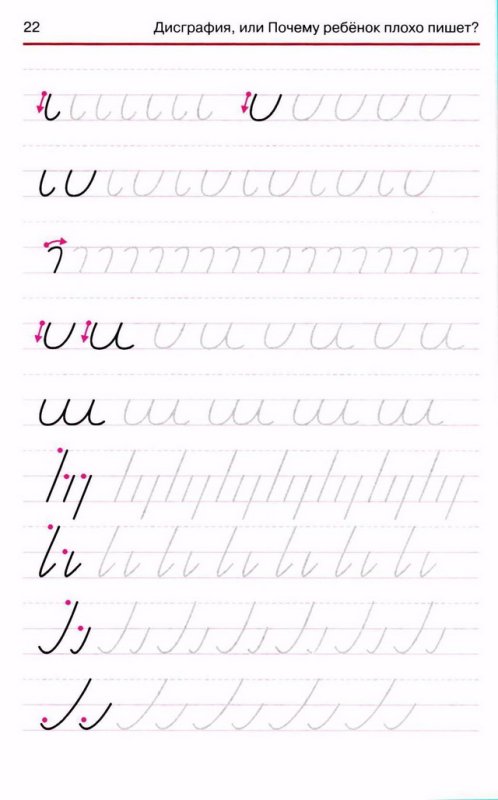 22 Дисграфия, или Почему ребёнок плохо пишет?